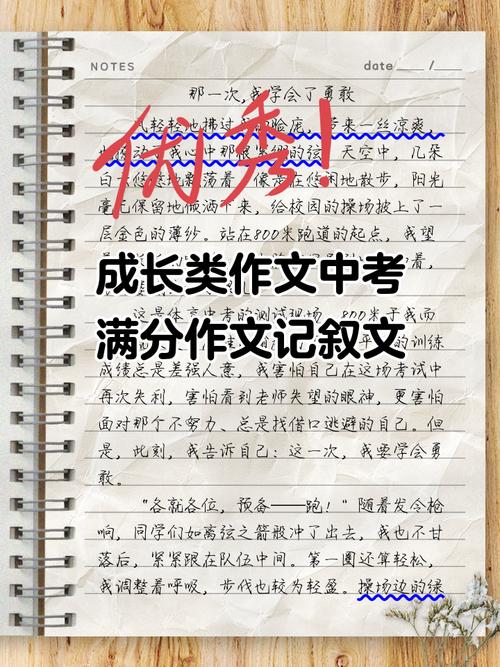 NOTES
date /
那一次,我学会了勇敢
风轻轻地拂过 脸庞，带来一丝凉爽，
动 我心中那根紧绷的弦。天空中，几朵
白云悠悠地飘荡着，像是在悠闲地散步，阳光
毫无保留地倾洒下来，给校园的操场披上了一
层金色的薄纱。站在800米跑道的起点，我望
着，
优秀！
成长类作文中考
满分作文记叙文
这是体育中考的测试现场，800米于我而
的训练
成绩总是差强人意，我害怕自己在这场考试中
再次失利，害怕看到老师失望的眼神，更害怕
面对那个不努力、总是找借口逃避的自己。但
是，此刻，我告诉自己：这一次，我要学会勇
敢。
“各就各位，预备——跑！”随着发令枪
响，同学们如离弦之箭般冲了出去，我也不甘
落后，紧紧跟在队伍中间。第一圈还算轻松，
我调整着呼吸，步伐也较为轻盈。操场边的绿